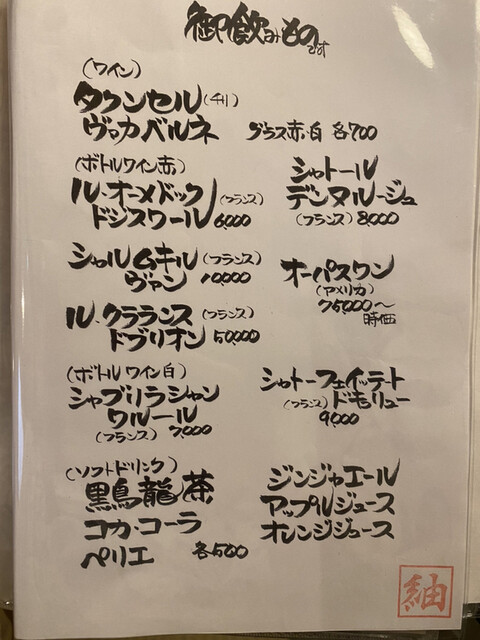 御飲みものです
(ワイン)
タウンセル(チリ)
ヴァカベルネ グラス赤・白 各700
(ボトルワイン赤)
ル・オーメドック(フランス)
ドジスワール 6,000
シャトール
デンヌルージュ
(フランス) 8,000
シャルムキル(フランス)
ヴァン 10,000
オーパスワン
(アメリカ)
75,000〜
時価
ル・クラランス(フランス)
ドブリオン 50,000
(ボトルワイン白)
シャブリラシャン
ワルール
(フランス) 7,000
シャトーフェイッテート
(フランス)ドモリュー
9,000
(ソフトドリンク)
黒烏龍茶
コカ・コーラ
ペリエ 各500
ジンジャエール
アップルジュース
オレンジジュース
紬